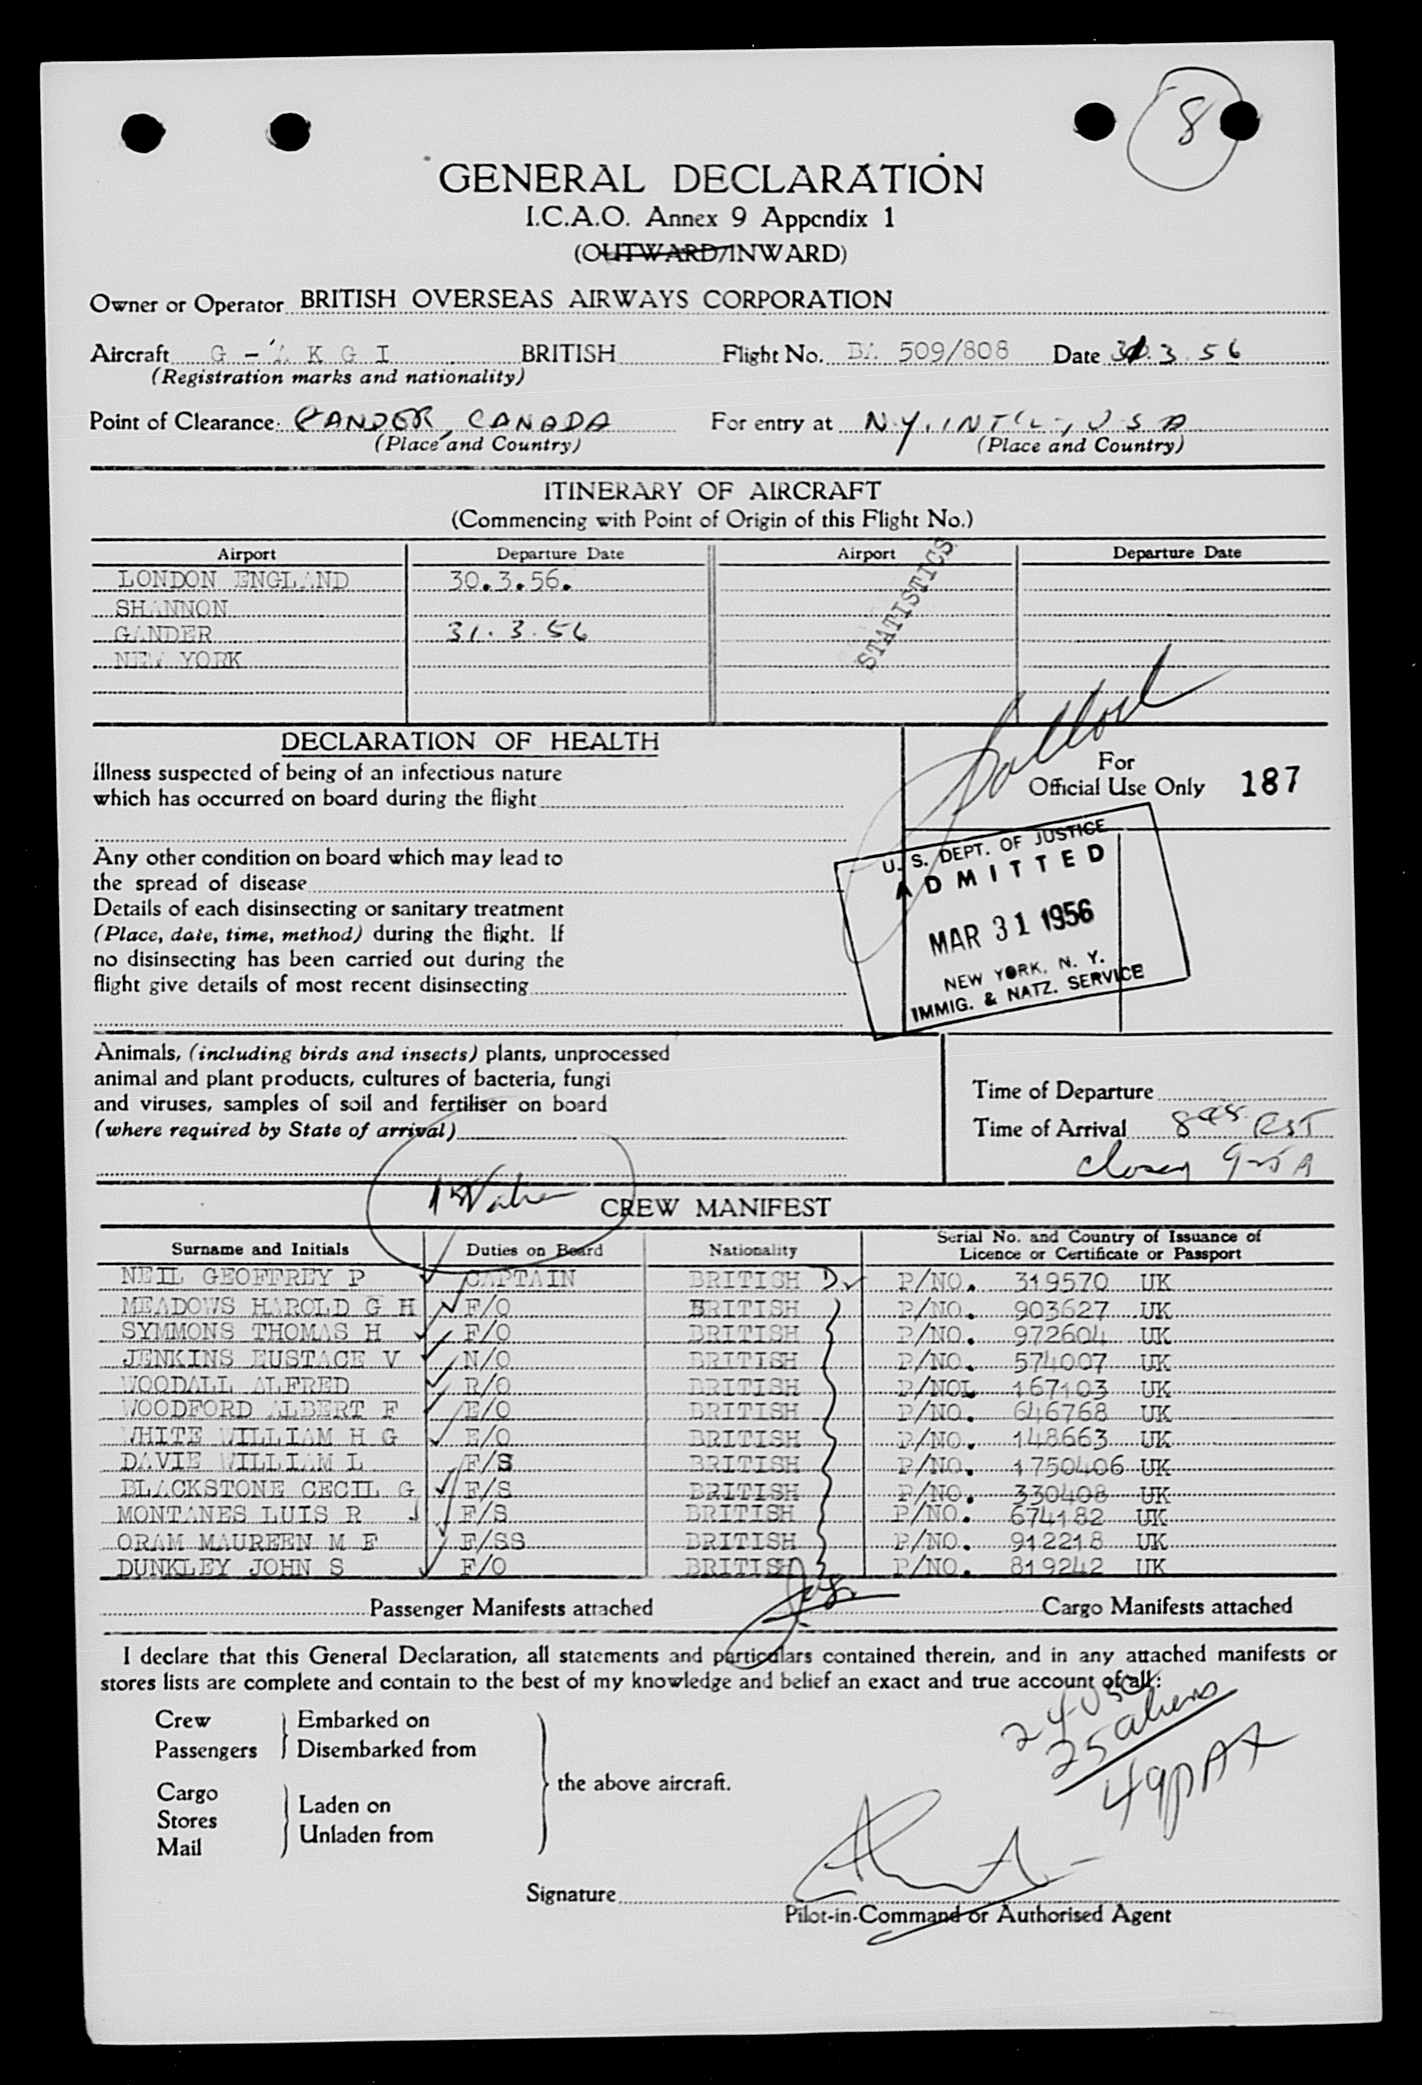 8
GENERAL DECLARATION
I.C.A.O. Annex 9 Appendix 1
(OUTWARD/INWARD)
Owner or Operator BRITISH OVERSEAS AIRWAYS CORPORATION
Aircraft G - A K G I BRITISH Flight No. BA 509/808 Date 31.3.56
(Registration marks and nationality)
Point of Clearance: GANDER, CANADA For entry at N.Y. INT'L, USA
(Place and Country) (Place and Country)
ITINERARY OF AIRCRAFT
(Commencing with Point of Origin of this Flight No.)
Airport Departure Date Airport Departure Date
LONDON ENGLAND 30.3.56.
SHANNON
GANDER 31.3.56
NEW YORK
STATISTICS
DECLARATION OF HEALTH
Illness suspected of being of an infectious nature
which has occurred on board during the flight
For
Official Use Only 187
Any other condition on board which may lead to
the spread of disease
Details of each disinsecting or sanitary treatment
(Place, date, time, method) during the flight. If
no disinsecting has been carried out during the
flight give details of most recent disinsecting
U. S. DEPT. OF JUSTICE
ADMITTED
MAR 31 1956
NEW YORK, N. Y.
IMMIG. & NATZ. SERVICE
Animals, (including birds and insects) plants, unprocessed
animal and plant products, cultures of bacteria, fungi
and viruses, samples of soil and fertiliser on board
(where required by State of arrival)
Time of Departure
Time of Arrival 8 45 EST
CREW MANIFEST
Surname and Initials Duties on Board Nationality Serial No. and Country of Issuance of Licence or Certificate or Passport
NEIL GEOFFREY P CAPTAIN BRITISH P/NO. 319570 UK
MEADOWS HAROLD G H F/O BRITISH P/NO. 903627 UK
SYMMONS THOMAS H F/O BRITISH P/NO. 972604 UK
JENKINS EUSTACE V N/O BRITISH P/NO. 574007 UK
WOODALL ALFRED R/O BRITISH P/NOL 167103 UK
WOODFORD ALBERT F E/O BRITISH P/NO. 646768 UK
WHITE WILLIAM H G E/O BRITISH P/NO. 148663 UK
DAVIE WILLIAM L F/S BRITISH P/NO. 1750406 UK
BLACKSTONE CECIL G F/S BRITISH P/NO. 330408 UK
MONTANES LUIS R J F/S BRITISH P/NO. 674182 UK
ORAM MAUREEN M F F/SS BRITISH P/NO. 912218 UK
DUNKLEY JOHN S F/O BRITISH P/NO. 819242 UK
Passenger Manifests attached Cargo Manifests attached
I declare that this General Declaration, all statements and particulars contained therein, and in any attached manifests or
stores lists are complete and contain to the best of my knowledge and belief an exact and true account of all:
24 USC
25 aliens
49 PAX
Crew
Passengers
Embarked on
Disembarked from
Cargo
Stores
Mail
Laden on
Unladen from
the above aircraft.
Signature
Pilot-in-Command or Authorised Agent